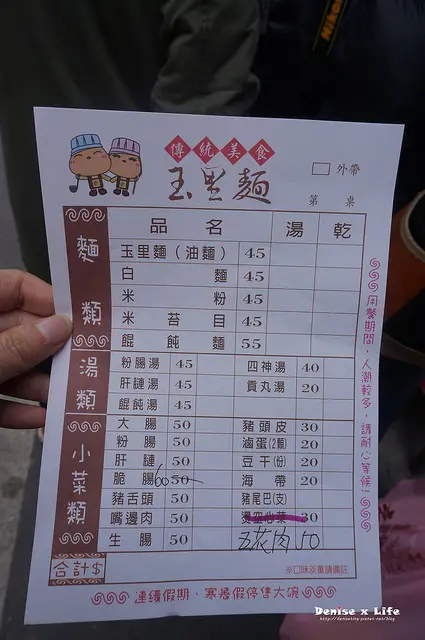 Nikon
傳統美食
玉里麵
外帶
第 桌
品名 湯 乾
麵類
玉里麵（油麵） 45
白麵 45
米粉 45
米苔目 45
餛飩麵 55
湯類
粉腸湯 45 四神湯 40
肝腱湯 45 貢丸湯 20
餛飩湯 45
小菜類
大腸 50 豬頭皮 30
粉腸 50 滷蛋(2顆) 20
肝腱 50 豆干(份) 20
脆腸 60 50 海帶 20
豬舌頭 50 豬尾巴(支)
嘴邊肉 50 燙空心菜 30
生腸 50 五花肉 50
合計$
※口味淡重請備註
用餐期間，人潮較多，請耐心等候!
連續假期、寒暑假停售大碗
Denise x Life